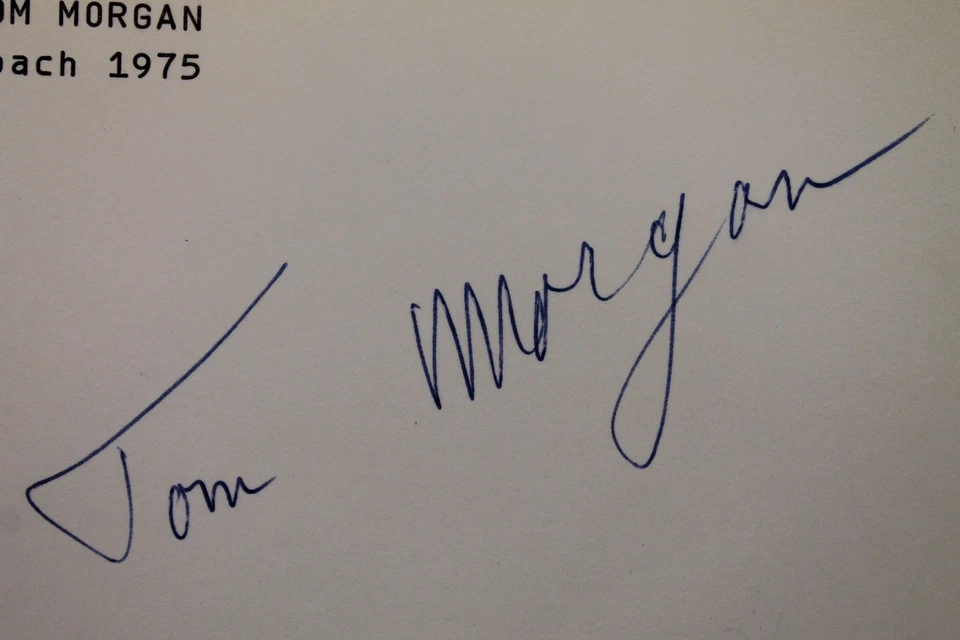 OM MORGAN
oach 1975
Tom Morgan